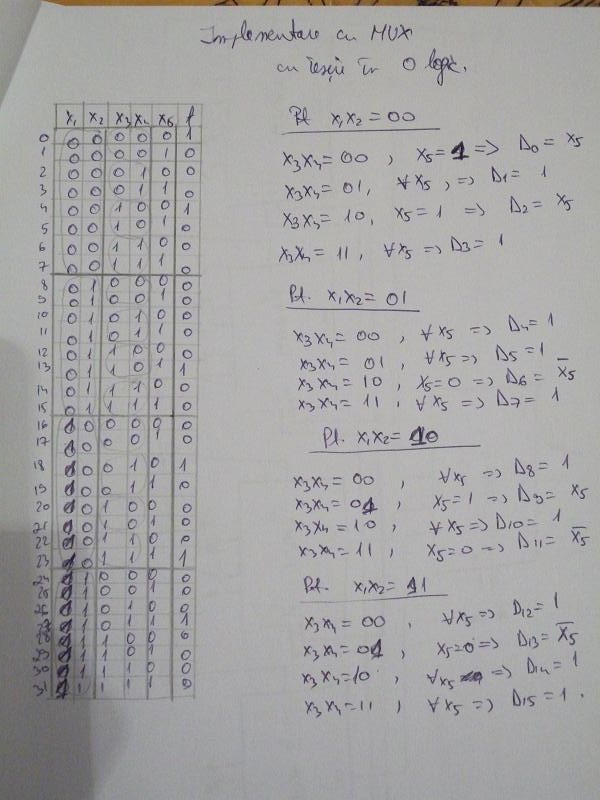 Implementare cu MUX
cu ieșire în 0 logic.
x1 x2 x3 x4 x5 f
0 0 0 0 0 0 1
1 0 0 0 0 1 0
2 0 0 0 1 0 0
3 0 0 0 1 1 0
4 0 0 1 0 0 1
5 0 0 1 0 1 0
6 0 0 1 1 0 0
7 0 0 1 1 1 0
8 0 1 0 0 0 0
9 0 1 0 0 1 0
10 0 1 0 1 0 0
11 0 1 0 1 1 0
12 0 1 1 0 0 0
13 0 1 1 0 1 1
14 0 1 1 1 0 0
15 0 1 1 1 1 0
16 1 0 0 0 0 0
17 1 0 0 0 1 0
18 1 0 0 1 0 1
19 1 0 0 1 1 0
20 1 0 1 0 0 0
21 1 0 1 0 1 0
22 1 0 1 1 0 0
23 1 0 1 1 1 1
24 1 1 0 0 0 0
25 1 1 0 0 1 0
26 1 1 0 1 0 0
27 1 1 0 1 1 1
28 1 1 1 0 0 0
29 1 1 1 0 1 0
30 1 1 1 1 0 0
31 1 1 1 1 1 0
Pt. x1x2 = 00
x3x4 = 00 , x5 = 1 => D0 = x5
x3x4 = 01, ∀x5 , => D1 = 1
x3x4 = 10, x5 = 1 => D2 = x5
x3x4 = 11, ∀x5 => D3 = 1
Pt. x1x2 = 01
x3x4 = 00 , ∀x5 => D4 = 1
x3x4 = 01 , ∀x5 => D5 = 1
x3x4 = 10 , x5=0 => D6 = x̅5
x3x4 = 11 , ∀x5 => D7 = 1
Pt. x1x2 = 10
x3x4 = 00 , ∀x5 => D8 = 1
x3x4 = 01 , x5=1 => D9 = x5
x3x4 = 10 , ∀x5 => D10 = 1
x3x4 = 11 , x5=0 => D11 = x̅5
Pt. x1x2 = 11
x3x4 = 00 , ∀x5 => D12 = 1
x3x4 = 01 , x5=0 => D13 = x̅5
x3x4 = 10 , ∀x5 => D14 = 1
x3x4 = 11 , ∀x5 => D15 = 1.